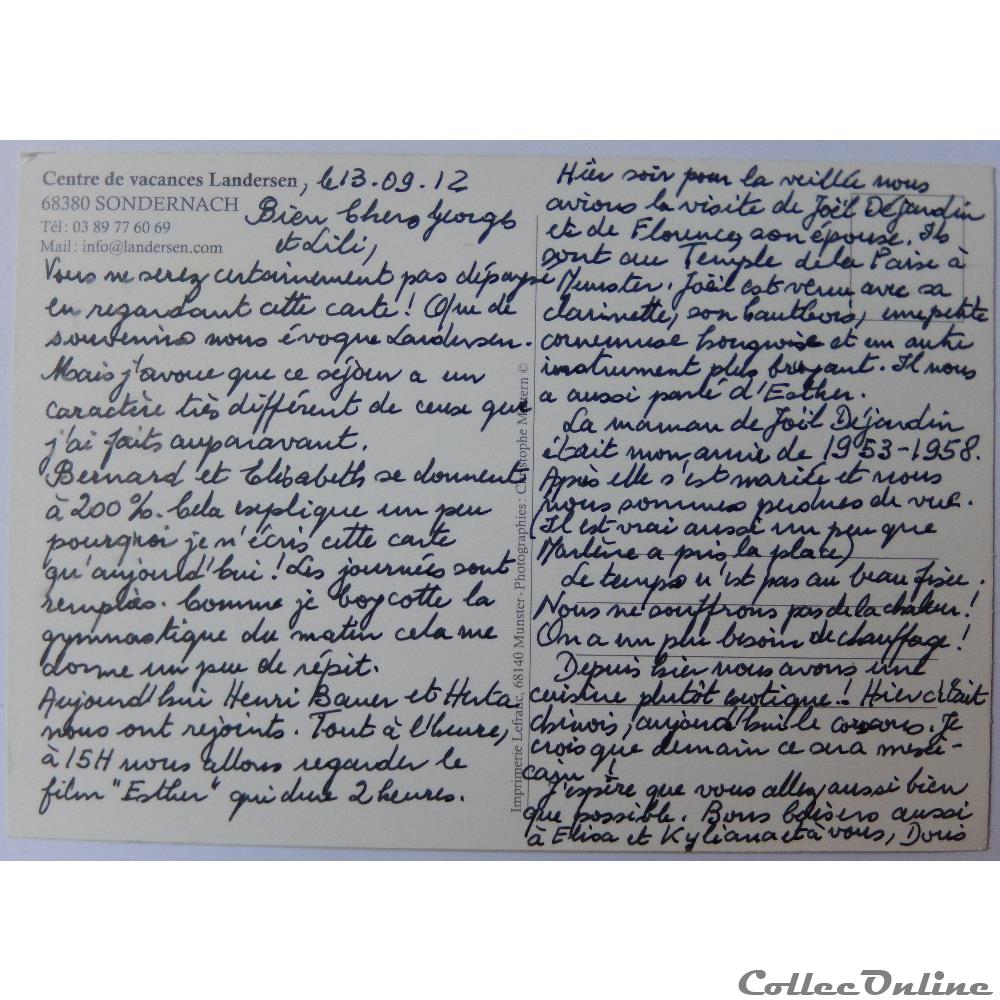 Centre de vacances Landersen, le 13.09.12
68380 SONDERNACH
Tél : 03 89 77 60 69
Mail : info@landersen.com
Bien Chers Georges
et Lili,
Vous ne serez certainement pas dépaysé
en regardant cette carte ! Que de
souvenirs nous évoque Landersen.
Mais j'avoue que ce séjour a un
caractère très différent de ceux que
j'ai faits auparavant.
Bernard et Elisabeth se donnent
à 200%. Cela explique un peu
pourquoi je n'écris cette carte
qu'aujourd'hui ! Les journées sont
remplies. Comme je boycotte la
gymnastique du matin cela me
donne un peu de répit.
Aujourd'hui Henri Bauer et Herta
nous ont rejoints. Tout à l'heure,
à 15H nous allons regarder le
film "Esther" qui dure 2 heures.
Imprimerie Lefranc, 68140 Munster - Photographies : Christophe ©
Hier soir pour la veillée nous
avions la visite de Joël Déjardin
et de Florence, son épouse. Ils
sont au Temple de la Paix à
Munster. Joël est venu avec sa
clarinette, son hautbois, une petite
cornemuse hongroise et un autre
instrument plus bruyant. Il nous
a aussi parlé d'Esther.
La maman de Joël Déjardin
était mon amie de 1953-1958.
Après elle s'est mariée et nous
nous sommes perdues de vue.
(Il est vrai aussi un peu que
Marlène a pris la place)
Le temps n'est pas au beau fixe.
Nous ne souffrons pas de la chaleur !
On a un peu besoin de chauffage !
Depuis hier nous avons une
cuisine plutôt exotique ! Hier c'était
chinois, aujourd'hui le couscous. Je
crois que demain ce sera mexi-
cain !
J'espère que vous allez aussi bien
que possible. Bons baisers aussi
à Elisa et Kyliana et à vous, Doris
CollecOnline